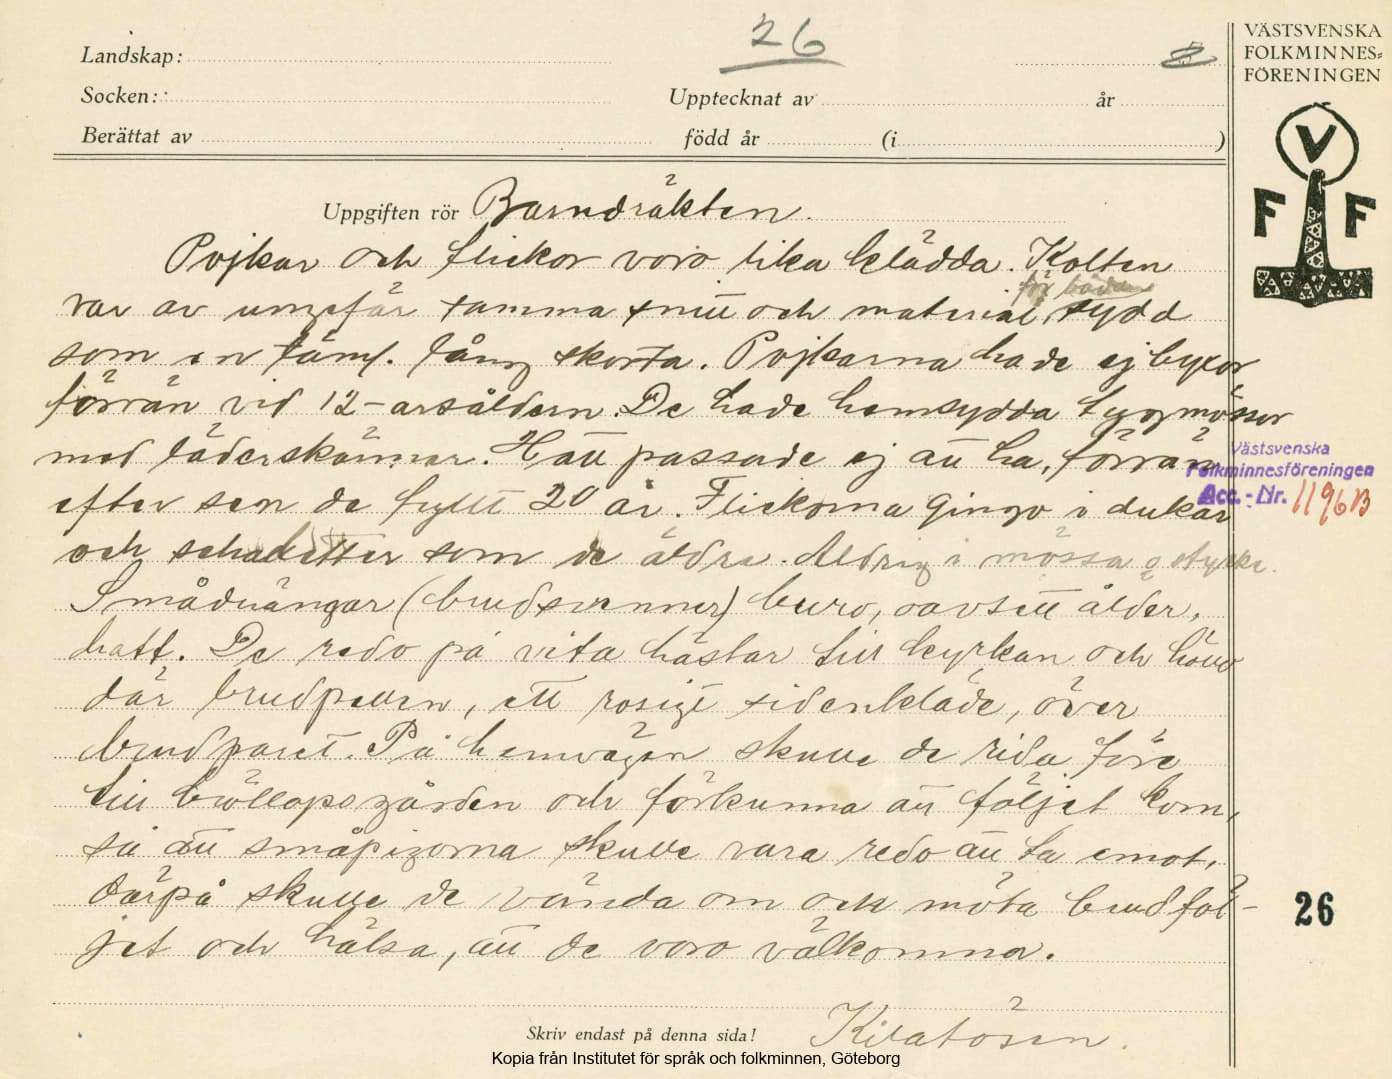 26
VÄSTSVENSKA
FOLKMINNES=
FÖRENINGEN
Landskap:
Socken:
Upptecknat av år
Berättat av född år (i )
V
F F
Uppgiften rör Barndräkten.
Pojkar och flickor voro lika klädda. Kolten
för båda
var av ungefär samma snitt och material, sydd
som en täml. lång skorta. Pojkarna hade ej byxor
förrän vid 12-årsåldern. De hade hemsydda tygmössor
med läderskärmar. Hatt passade ej att ha, förrän
efter sen de fyllt 20 år. Flickorna gingo i dukar
och schaletter som de äldre. Aldrig i mössa o stycke.
Smådrängar (brudsvenner) buro, oavsett ålder,
hatt. De redo på vita hästar till kyrkan och höllo
där brudpällen, ett rosigt sidenkläde, över
brudparet. På hemvägen skulle de rida före
till bröllopsgården och förkunna att följet kom,
så att småpigorna skulle vara redo att ta emot.
Därpå skulle de vända om och möta brudföl-
jet och hälsa, att de voro välkomna.
Västsvenska
Folkminnesföreningen
Acc.-Nr. 1196B
26
Skriv endast på denna sida!
Kopia från Institutet för språk och folkminnen, Göteborg